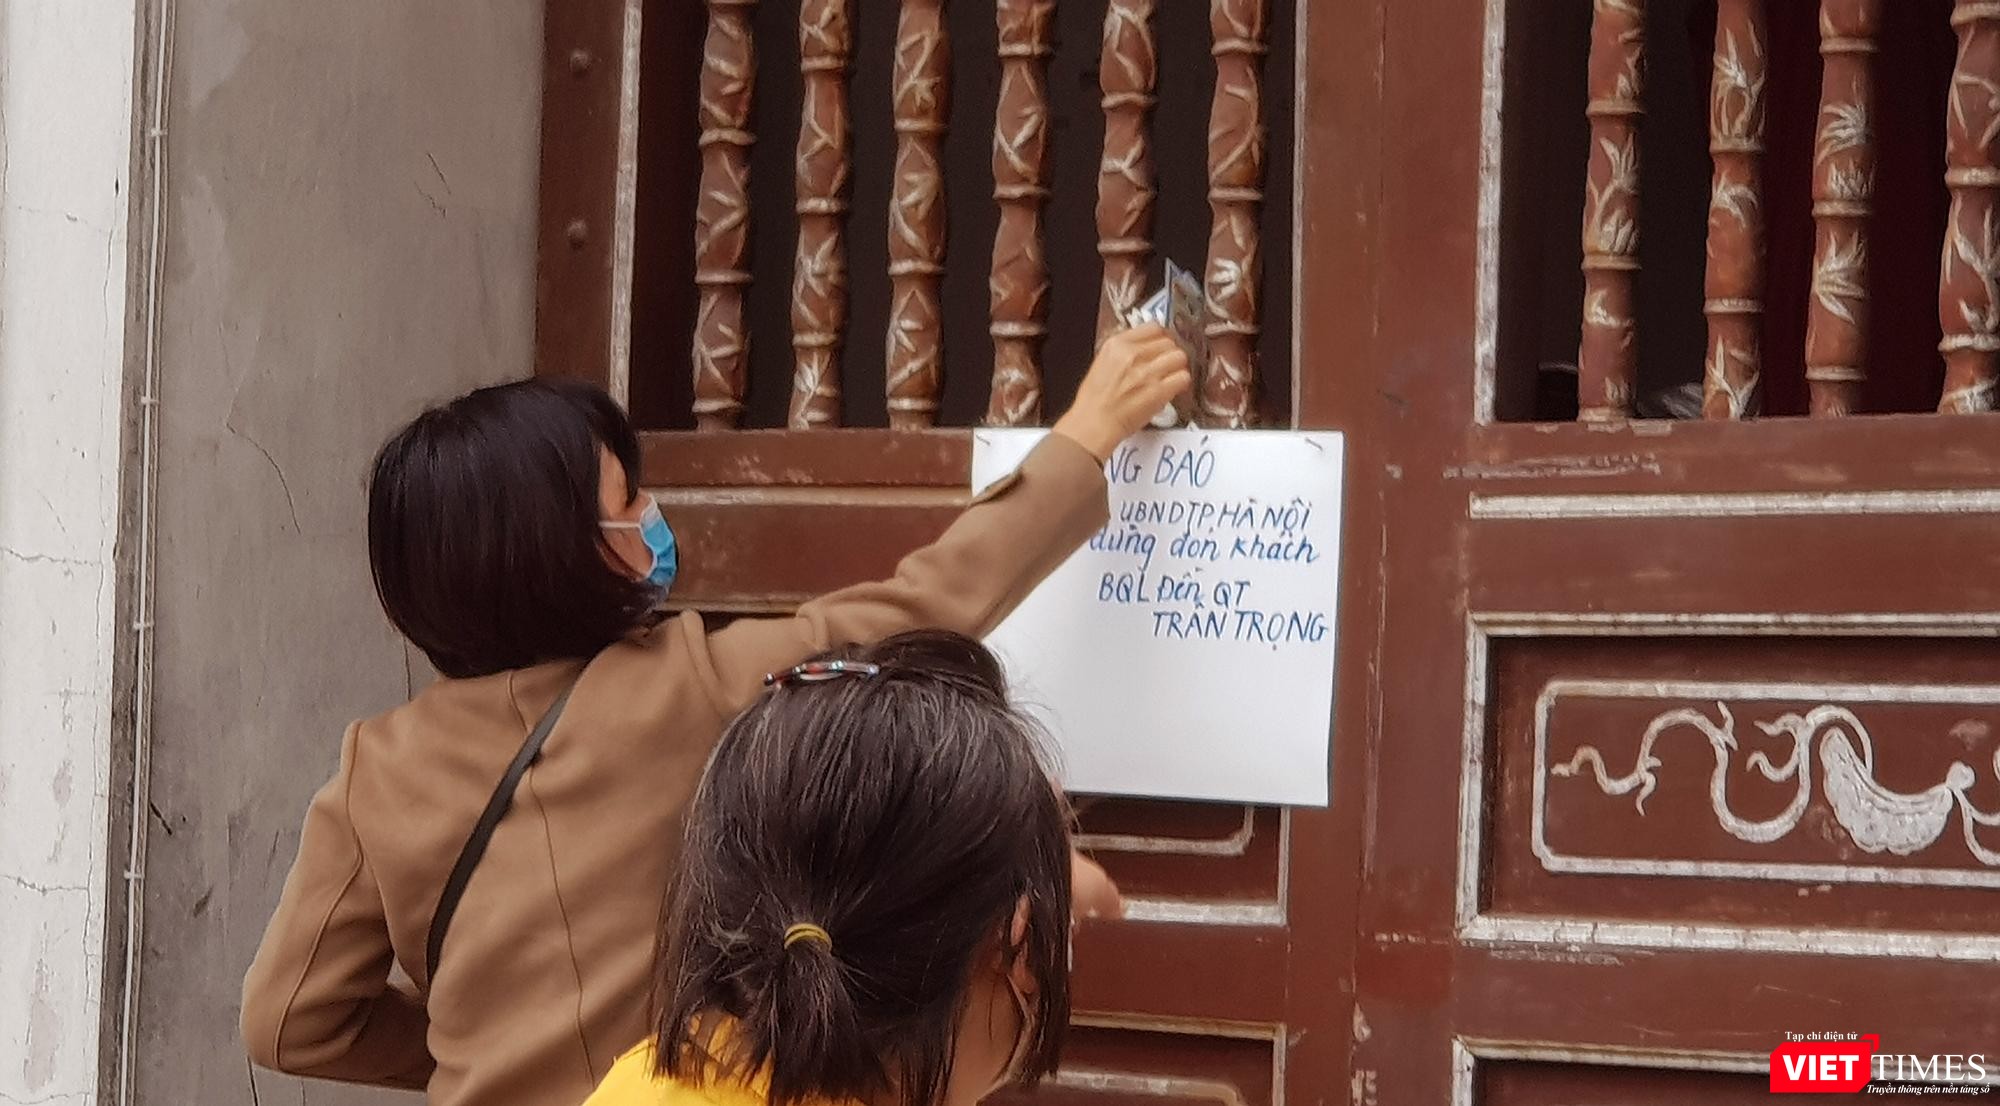 NG BÁO
UBNDTP.HÀ NỘI
dừng đón khách
BQL Đền QT
TRÂN TRỌNG
Tạp chí điện tử
VIETTIMES
Truyền thông trên nền tảng số